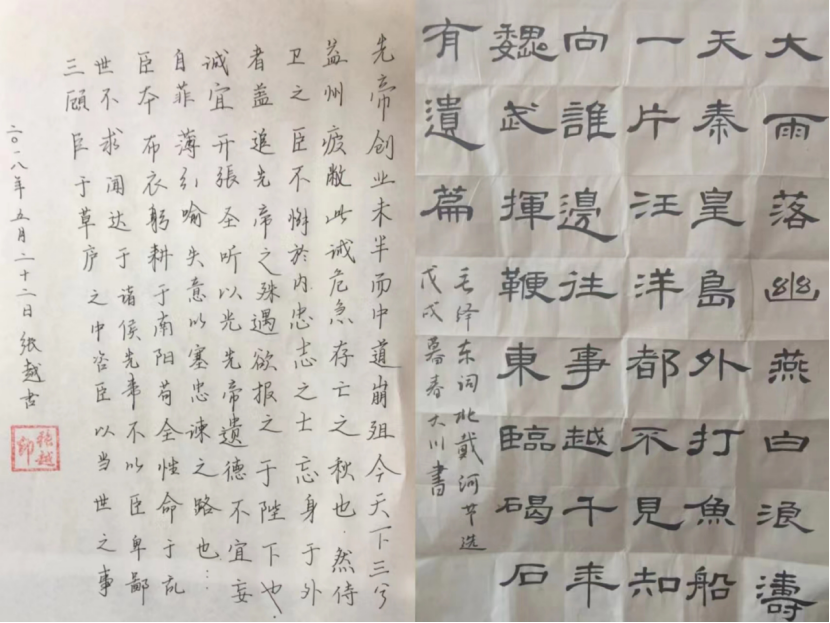 先帝创业未半而中道崩殂今天下三分
益州疲敝此诚危急存亡之秋也.然侍
卫之臣不懈於内忠志之士忘身于外
者盖追先帝之殊遇欲报之于陛下也.
诚宜开張圣听以光先帝遗德不宜妄
自菲薄引喻失意以塞忠谏之路也:
臣本布衣躬耕于南阳苟全性命于乱
世不求闻达于诸侯先帝不以臣卑鄙
三顾臣于草庐之中咨臣以当世之事
二〇一八年五月二十二日张越书
張越印
大雨落幽燕白浪濤
天秦皇島外打魚船
一片汪洋都不見知
向誰邊往事越千年
魏武揮鞭東臨碣石
有遺篇
毛泽东词北戴河节选
戊戌暮春大川書